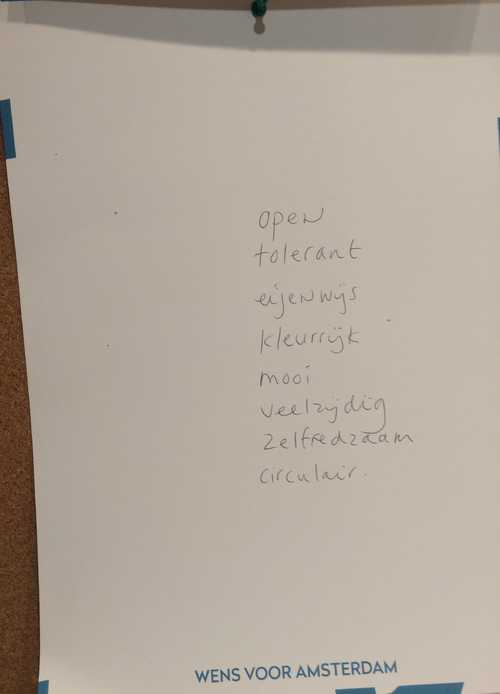 open
tolerant
eijenwijs
kleurrijk
mooi
veelzijdig
zelfredzaam
circulair.
WENS VOOR AMSTERDAM